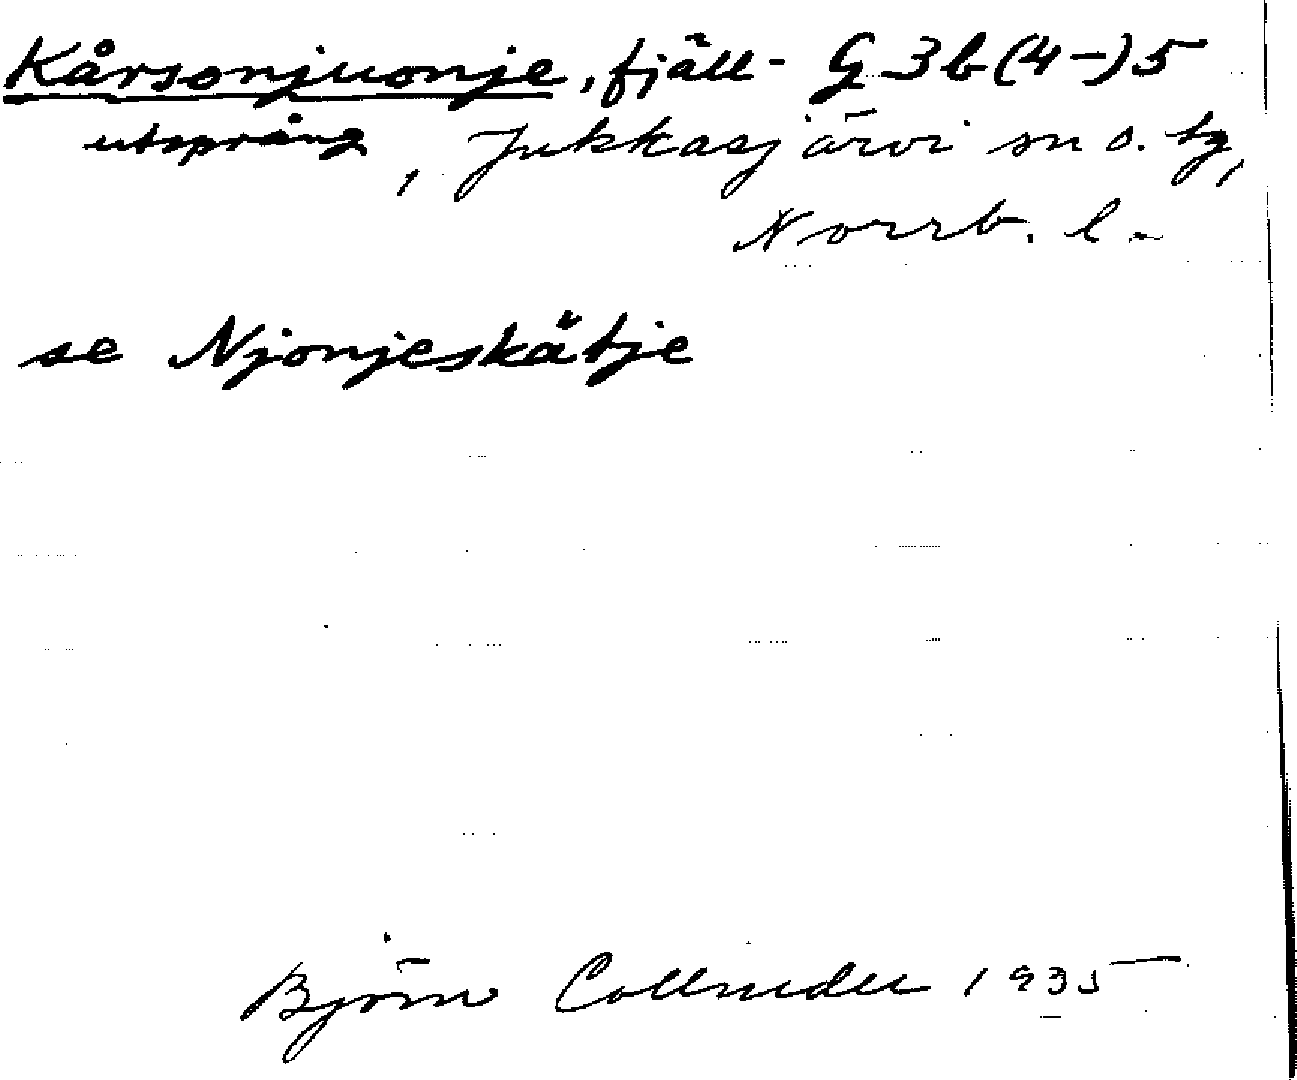 Kårsonjuonje, fjäll- G 3b(4-)5
utsprång, Jukkasjärvi sn o. tg,
Norrb. l.
se Njonjeskåtje
Björn Collinder 1935